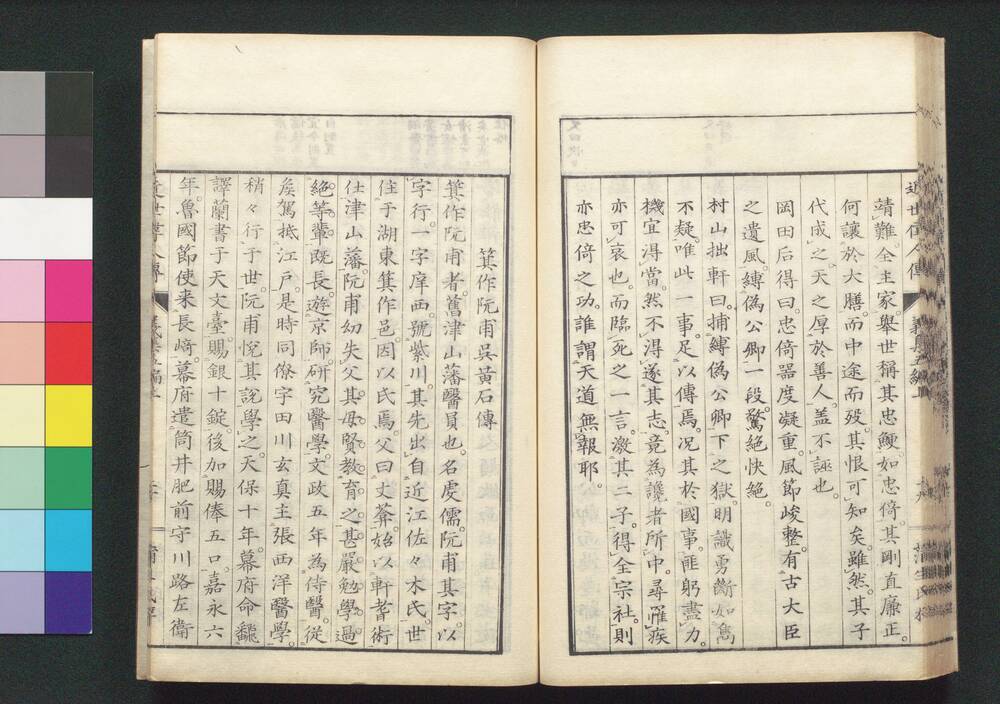 靖難。全主家。舉世稱其忠鯁。如忠倚。其剛直廉正。
何讓於大膳。而中途而歿。其恨可知矣。雖然。其子
代成之。天之厚於善人。蓋不誣也。
岡田后得曰。忠倚器度凝重。風節峻整。有古大臣
之遺風。縛偽公卿一段。驚絕快絕。
村山拙軒曰。捕縛偽公卿。下之獄。明識勇斷如雋
不疑。唯此一事。足以傳焉。况其於國事。匪躬盡力。
機宜得當。然不得遂其志。竟為讒者所中。尋罹疾
亦可哀也。而臨死之一言。激其二子。得全宗社。則
亦忠倚之功。誰謂天道無報耶。
箕作阮甫吳黃石傳
箕作阮甫者。舊津山藩醫員也。名虔儒。阮甫其字。以
字行。一字庠西。號紫川。其先出自近江佐々木氏。世
住于湖東箕作邑。因以氏焉。父曰丈菴。始以軒耆術
仕津山藩。阮甫幼失父。其母賢。教育之甚嚴。勉學過
絕等輩。既長。遊京師。研究醫學。文政五年為侍醫。從
矦駕抵江戶。是時同僚宇田川玄真主張西洋醫學。
稍々行于世。阮甫悅其說學之。天保十年。幕府命飜
譯蘭書于天文臺。賜銀十錠。後加賜俸五口。嘉永六
年。魯國節使来長崎。幕府遣筒井肥前守川路左衛
近世偉人傳